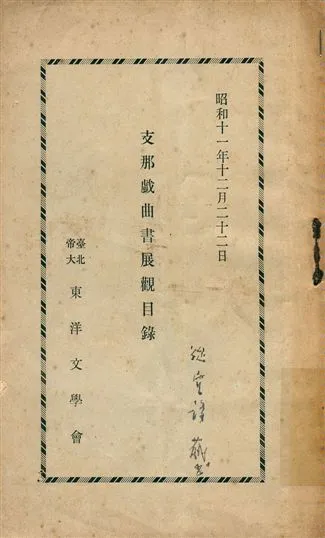 昭和十一年十二月二十二日
支那戲曲書展觀目錄
臺北
帝大
東洋文學會
藏書